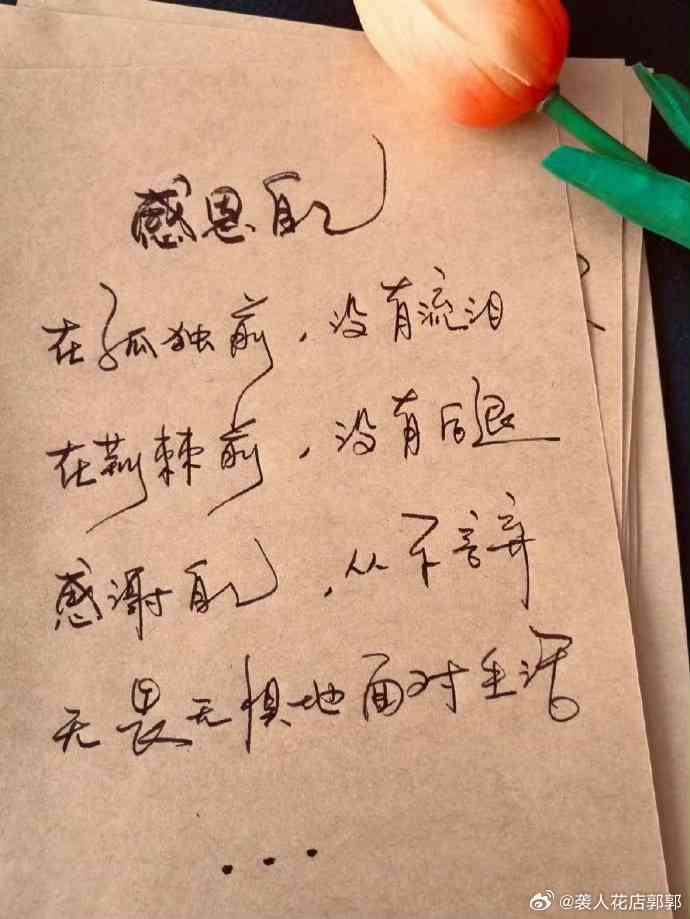 感恩自己
在孤独前，没有流泪
在荆棘前，没有后退
感谢自己，从不言弃
无畏无惧地面对生活
...
@袭人花店郭郭